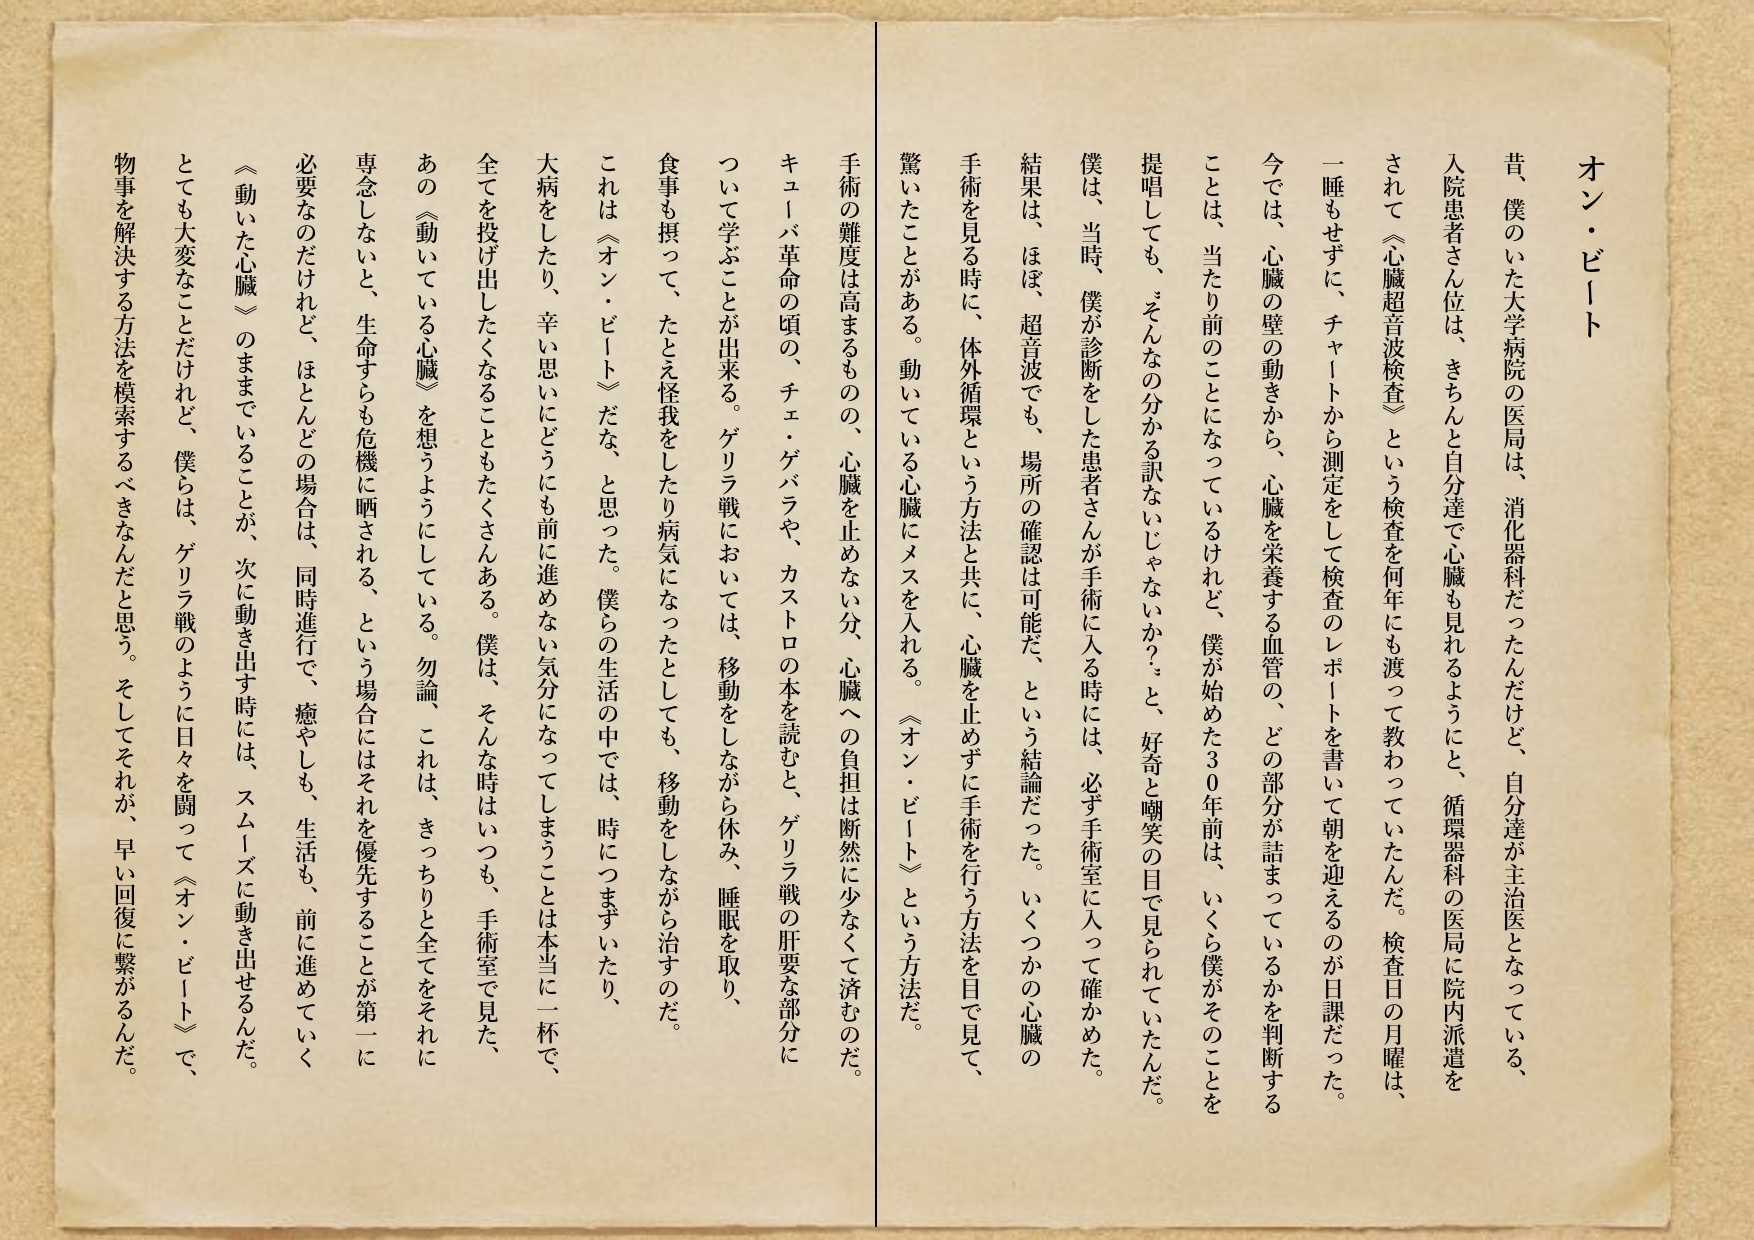 オン・ビート
昔、僕のいた大学病院の医局は、消化器科だったんだけど、自分達が主治医となっている、
入院患者さん位は、きちんと自分達で心臓も見れるようにと、循環器科の医局に院内派遣を
されて《心臓超音波検査》という検査を何年にも渡って教わっていたんだ。検査日の月曜は、
一睡もせずに、チャートから測定をして検査のレポートを書いて朝を迎えるのが日課だった。
今では、心臓の壁の動きから、心臓を栄養する血管の、どの部分が詰まっているかを判断する
ことは、当たり前のことになっているけれど、僕が始めた30年前は、いくら僕がそのことを
提唱しても、〝そんなの分かる訳ないじゃないか?〟と、好奇と嘲笑の目で見られていたんだ。
僕は、当時、僕が診断をした患者さんが手術に入る時には、必ず手術室に入って確かめた。
結果は、ほぼ、超音波でも、場所の確認は可能だ、という結論だった。いくつかの心臓の
手術を見る時に、体外循環という方法と共に、心臓を止めずに手術を行う方法を目で見て、
驚いたことがある。動いている心臓にメスを入れる。《オン・ビート》という方法だ。
手術の難度は高まるものの、心臓を止めない分、心臓への負担は断然に少なくて済むのだ。
キューバ革命の頃の、チェ・ゲバラや、カストロの本を読むと、ゲリラ戦の肝要な部分に
ついて学ぶことが出来る。ゲリラ戦においては、移動をしながら休み、睡眠を取り、
食事も摂って、たとえ怪我をしたり病気になったとしても、移動をしながら治すのだ。
これは《オン・ビート》だな、と思った。僕らの生活の中では、時につまずいたり、
大病をしたり、辛い思いにどうにも前に進めない気分になってしまうことは本当に一杯で、
全てを投げ出したくなることもたくさんある。僕は、そんな時はいつも、手術室で見た、
あの《動いている心臓》を想うようにしている。勿論、これは、きっちりと全てをそれに
専念しないと、生命すらも危機に晒される、という場合にはそれを優先することが第一に
必要なのだけれど、ほとんどの場合は、同時進行で、癒やしも、生活も、前に進めていく
《動いた心臓》のままでいることが、次に動き出す時には、スムーズに動き出せるんだ。
とても大変なことだけれど、僕らは、ゲリラ戦のように日々を闘って《オン・ビート》で、
物事を解決する方法を模索するべきなんだと思う。そしてそれが、早い回復に繋がるんだ。